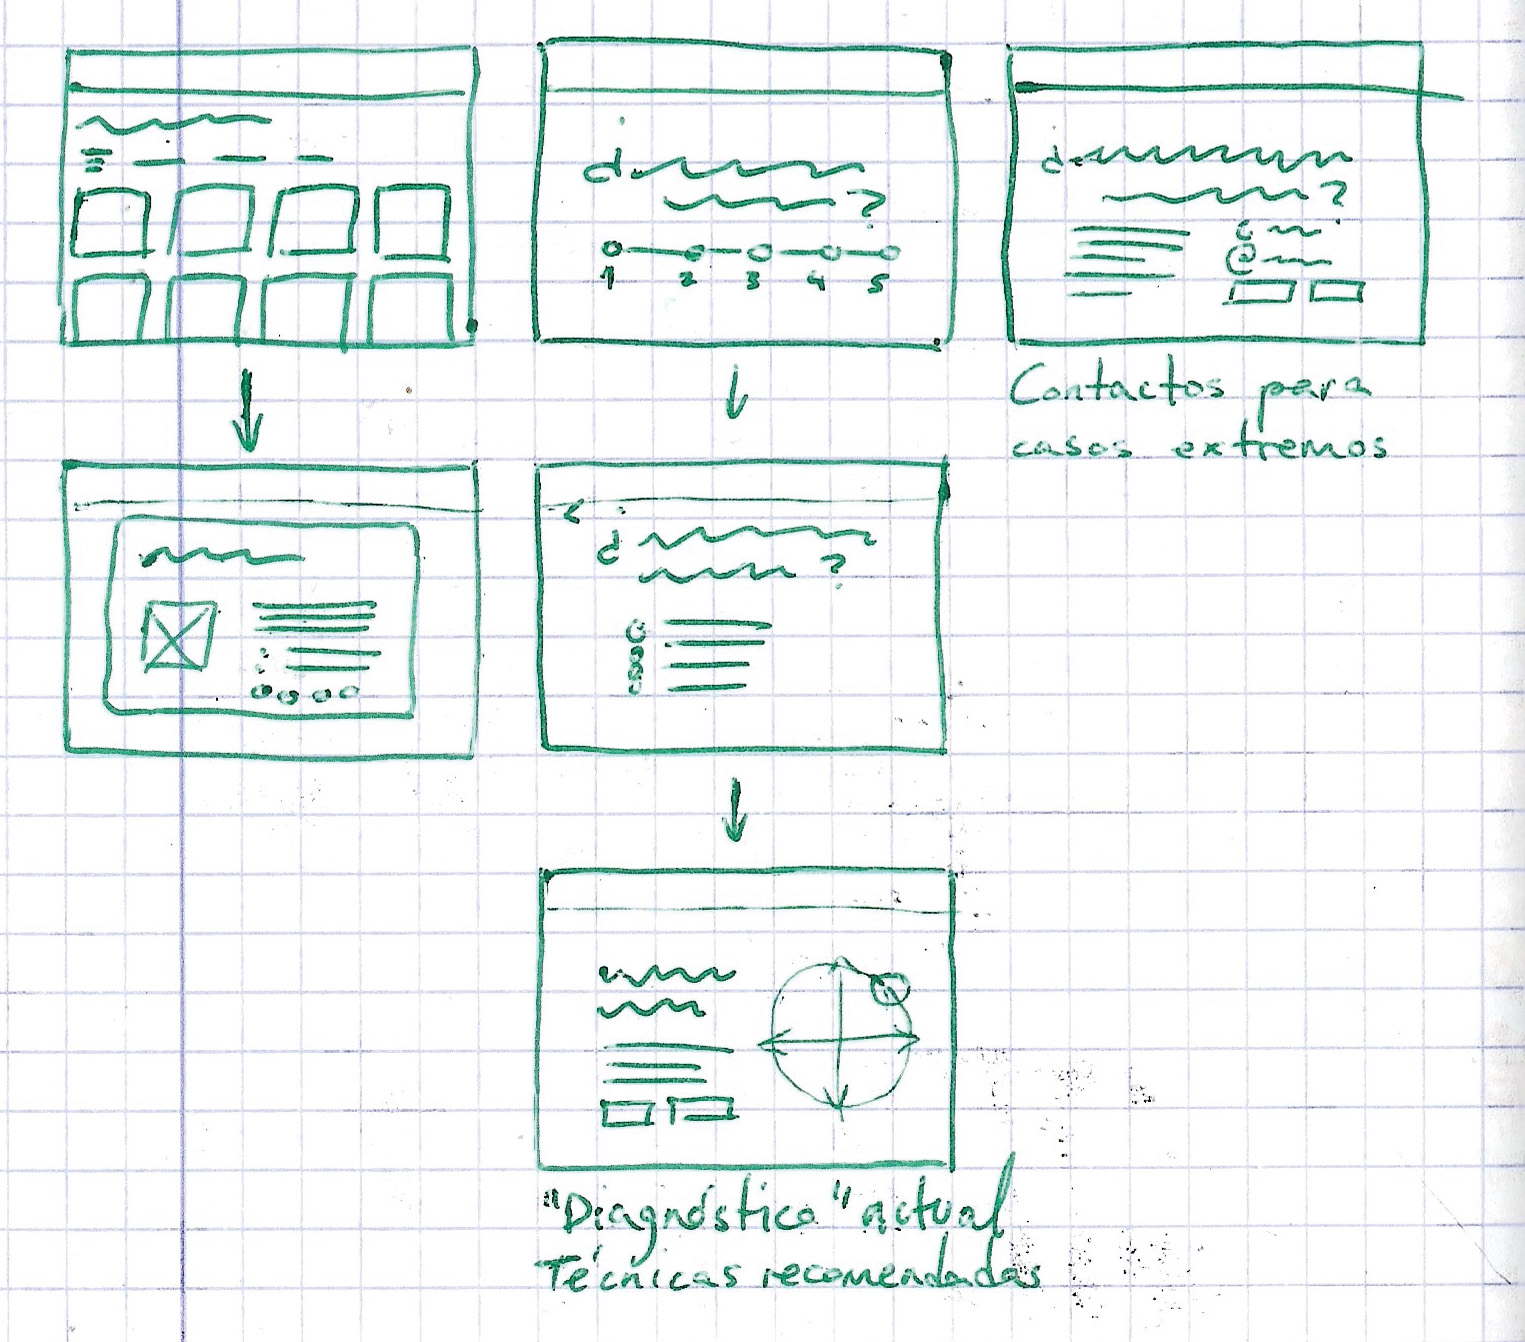 ¿ ?
1 2 3 4 5
¿ ?
@
Contactos para
casos extremos
<
¿ ?
"Diagnóstico" actual
Técnicas recomendadas